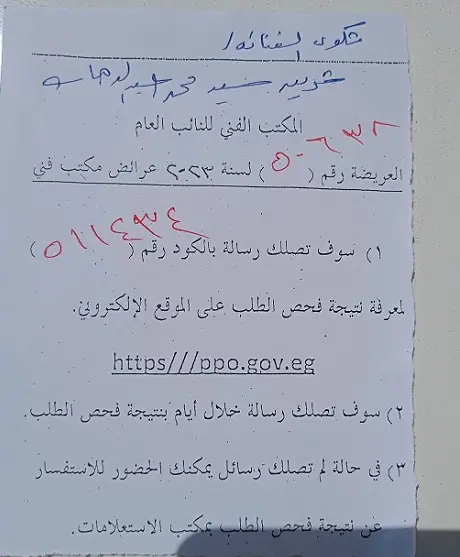 شكوى الفنانه /
شريين سيد محمد
المكتب الفني للنائب العام
العريضة رقم ( ٥٠٦٣٢ ) لسنة ٢٠٢٣ عرائض مكتب فني
١) سوف تصلك رسالة بالكود رقم ( ٥١١٤٣٤ )
لمعرفة نتيجة فحص الطلب على الموقع الإلكتروني.
https///ppo.gov.eg
٢) سوف تصلك رسالة خلال أيام بنتيجة فحص الطلب.
٣) في حالة لم تصلك رسائل يمكنك الحضور للاستفسار
عن نتيجة فحص الطلب بمكتب الاستعلامات.